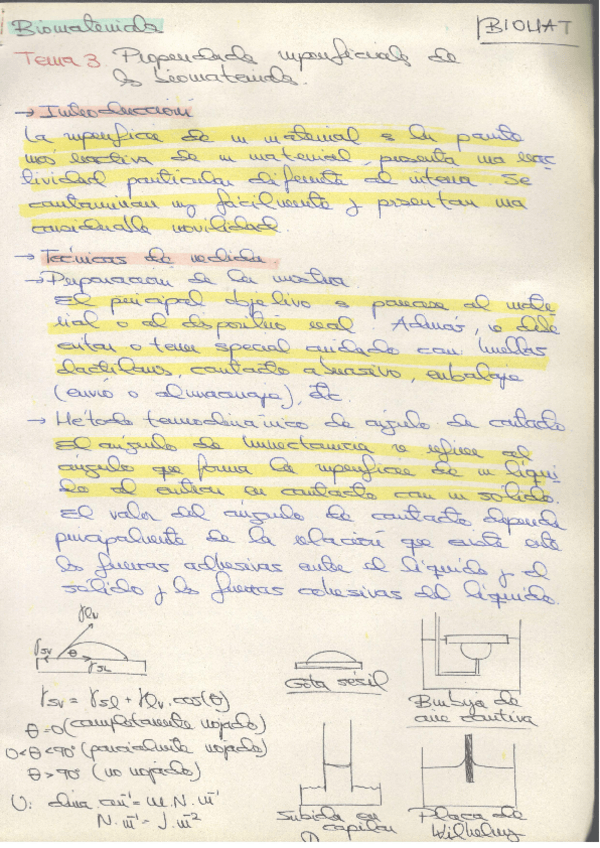 Biomateriales
BIOMAT
Tema 3 Propiedades superficiales de
los biomateriales.
→ Introducción
La superficie de un material es la parte
más reactiva de un material, presenta una reac
tividad particular diferente al interna. Se
contaminan muy facilmente y presentan una
considerable movilidad.
→ Técnicas de medida.
→ Preparación de la muestra
El principal objetivo es parecerse al mate
rial o al dispositivo real. Además, se debe
evitar o tener special cuidado con huellas
dactilares, contacto abrasivo, embalaje
(envío o almacenaje), etc.
→ Método termodinámico de ángulo de contacto
El ángulo de humectancia se refiere al
ángulo que forma la superficie de un líqui
do al entrar en contacto con un sólido.
El valor del ángulo de contacto depende
principalmente de la relación que existe entre
las fuerzas adhesivas entre el líquido y el
sólido y las fuerzas cohesivas del líquido.
γlv
γsv θ γsl
γsv = γsl + γlv · cos(θ)
θ=0 (completamente mojado)
0<θ<90° (parcialmente mojado)
θ>90° (no mojado)
U: dina·cm⁻¹ = m·N·m⁻¹
N·m⁻¹ = J·m⁻²
Gota sésil
Burbuja de
aire cautiva
Subida en
capilar
Placa de
Wilhelmy